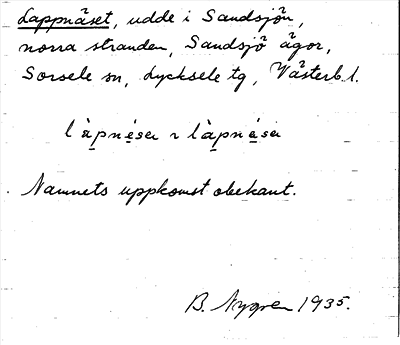 Lappnäset, udde i Sandsjön,
norra stranden, Sandsjö ägor,
Sorsele sn, Lycksele tg, Västerb. l.
làpnése
Namnets uppkomst obekant.
B. Nygren 1935.